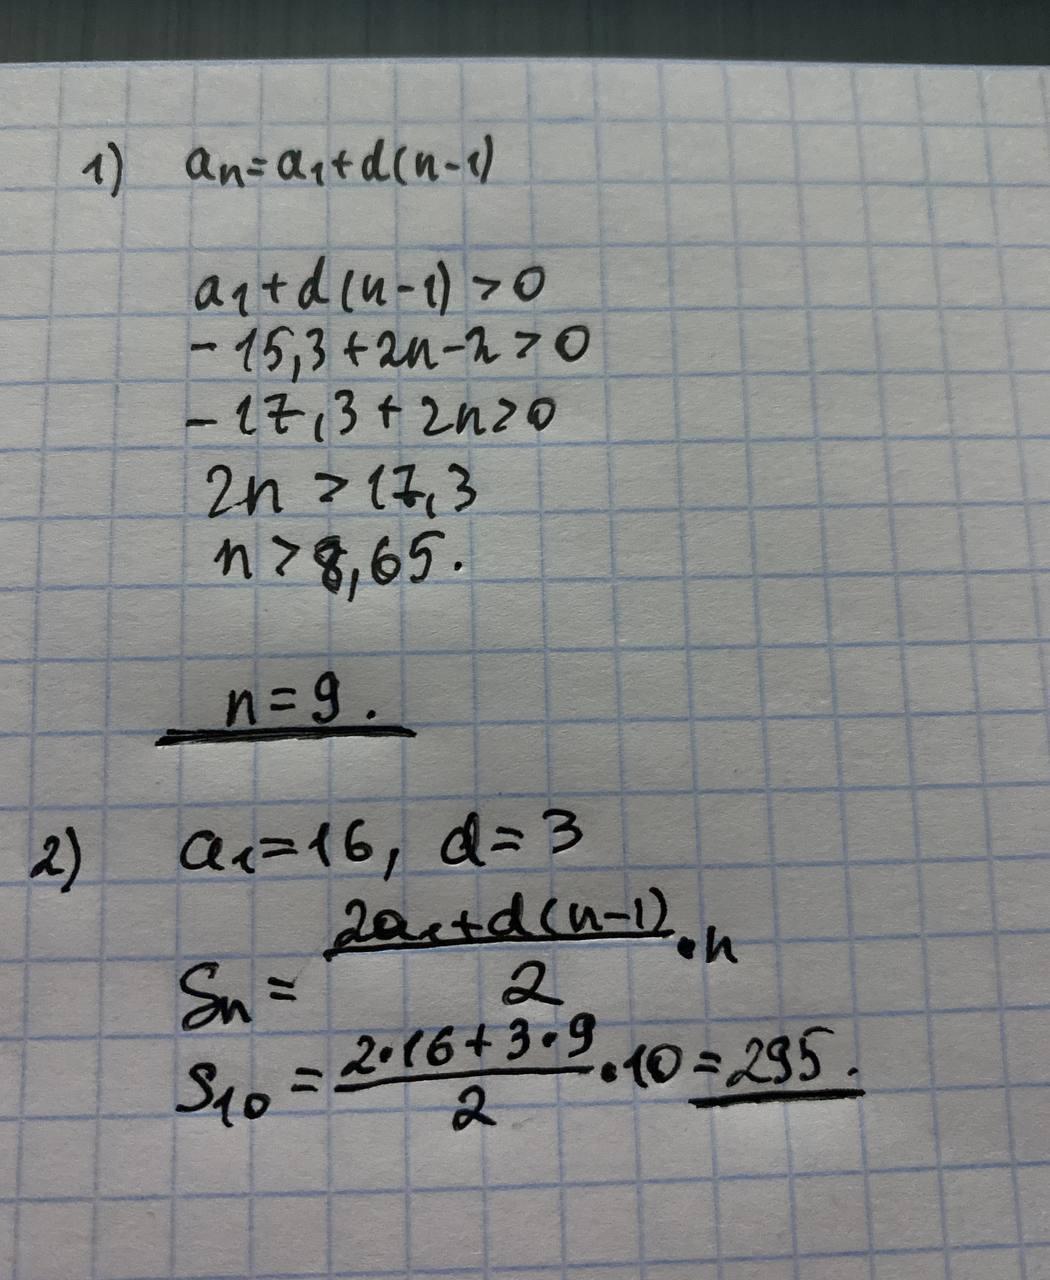 1) aₙ=a₁+d(n-1)
a₁+d(n-1)>0
-15,3+2n-2>0
-17,3+2n>0
2n>17,3
n>8,65.
n=9.
2) a₁=16, d=3
Sₙ = (2a₁+d(n-1))/2 •n
S₁₀ = (2•16+3•9)/2 •10=295.